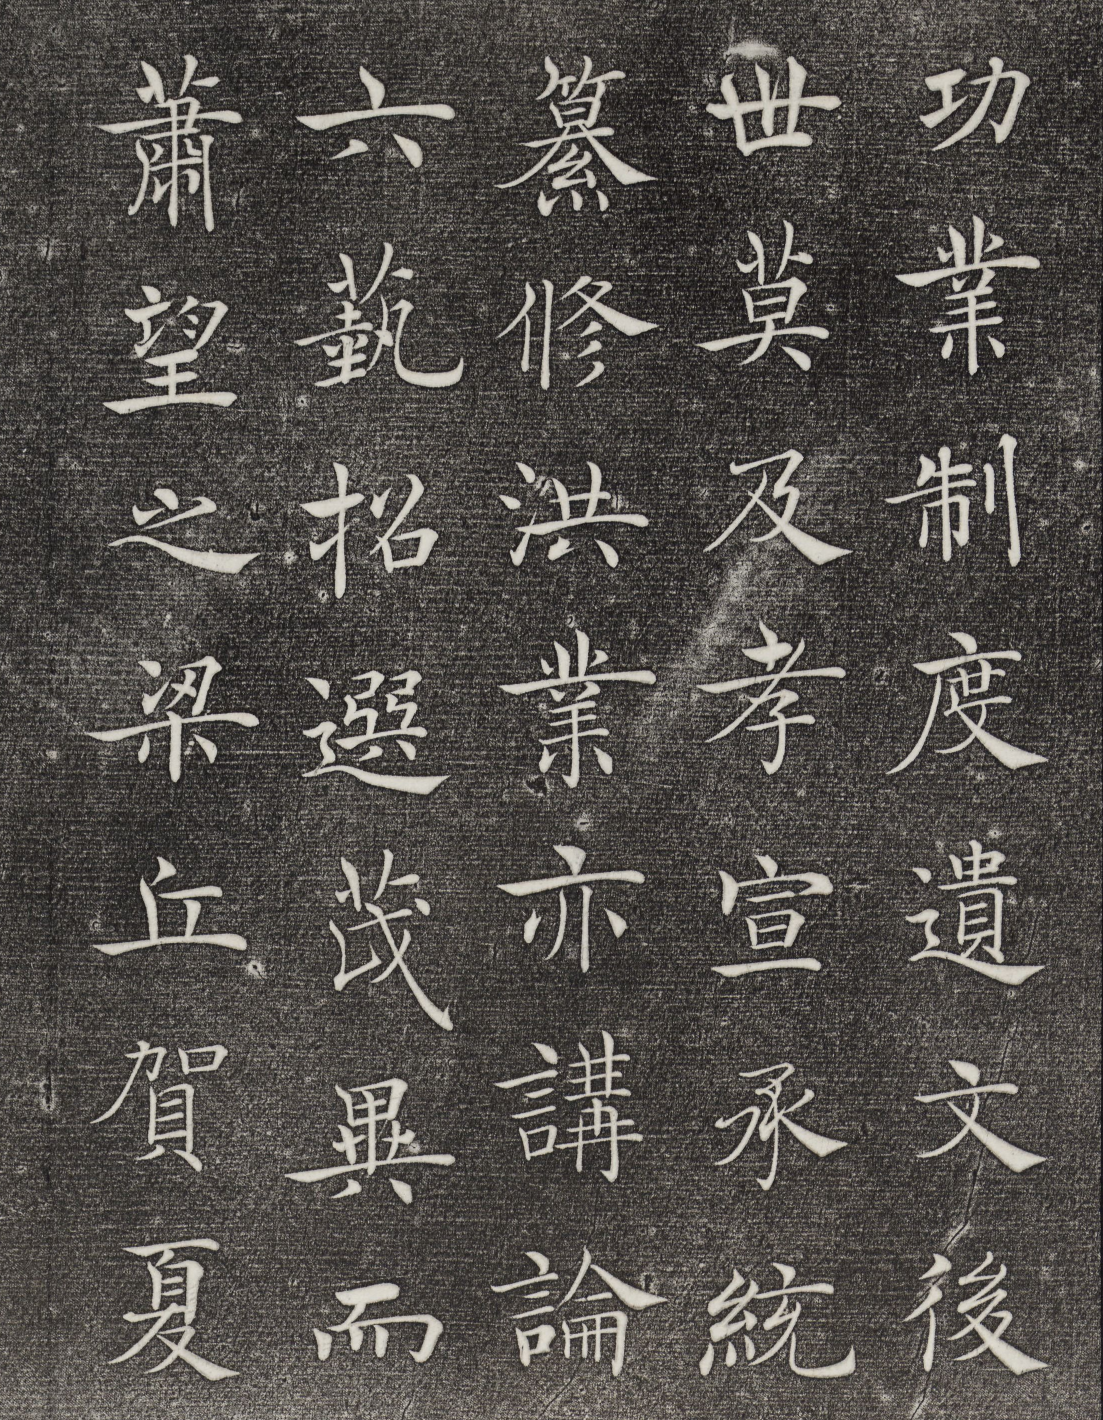 功業制度遺文後
世莫及孝宣承統
纂修洪業亦講論
六藝招選茂異而
蕭望之梁丘賀夏